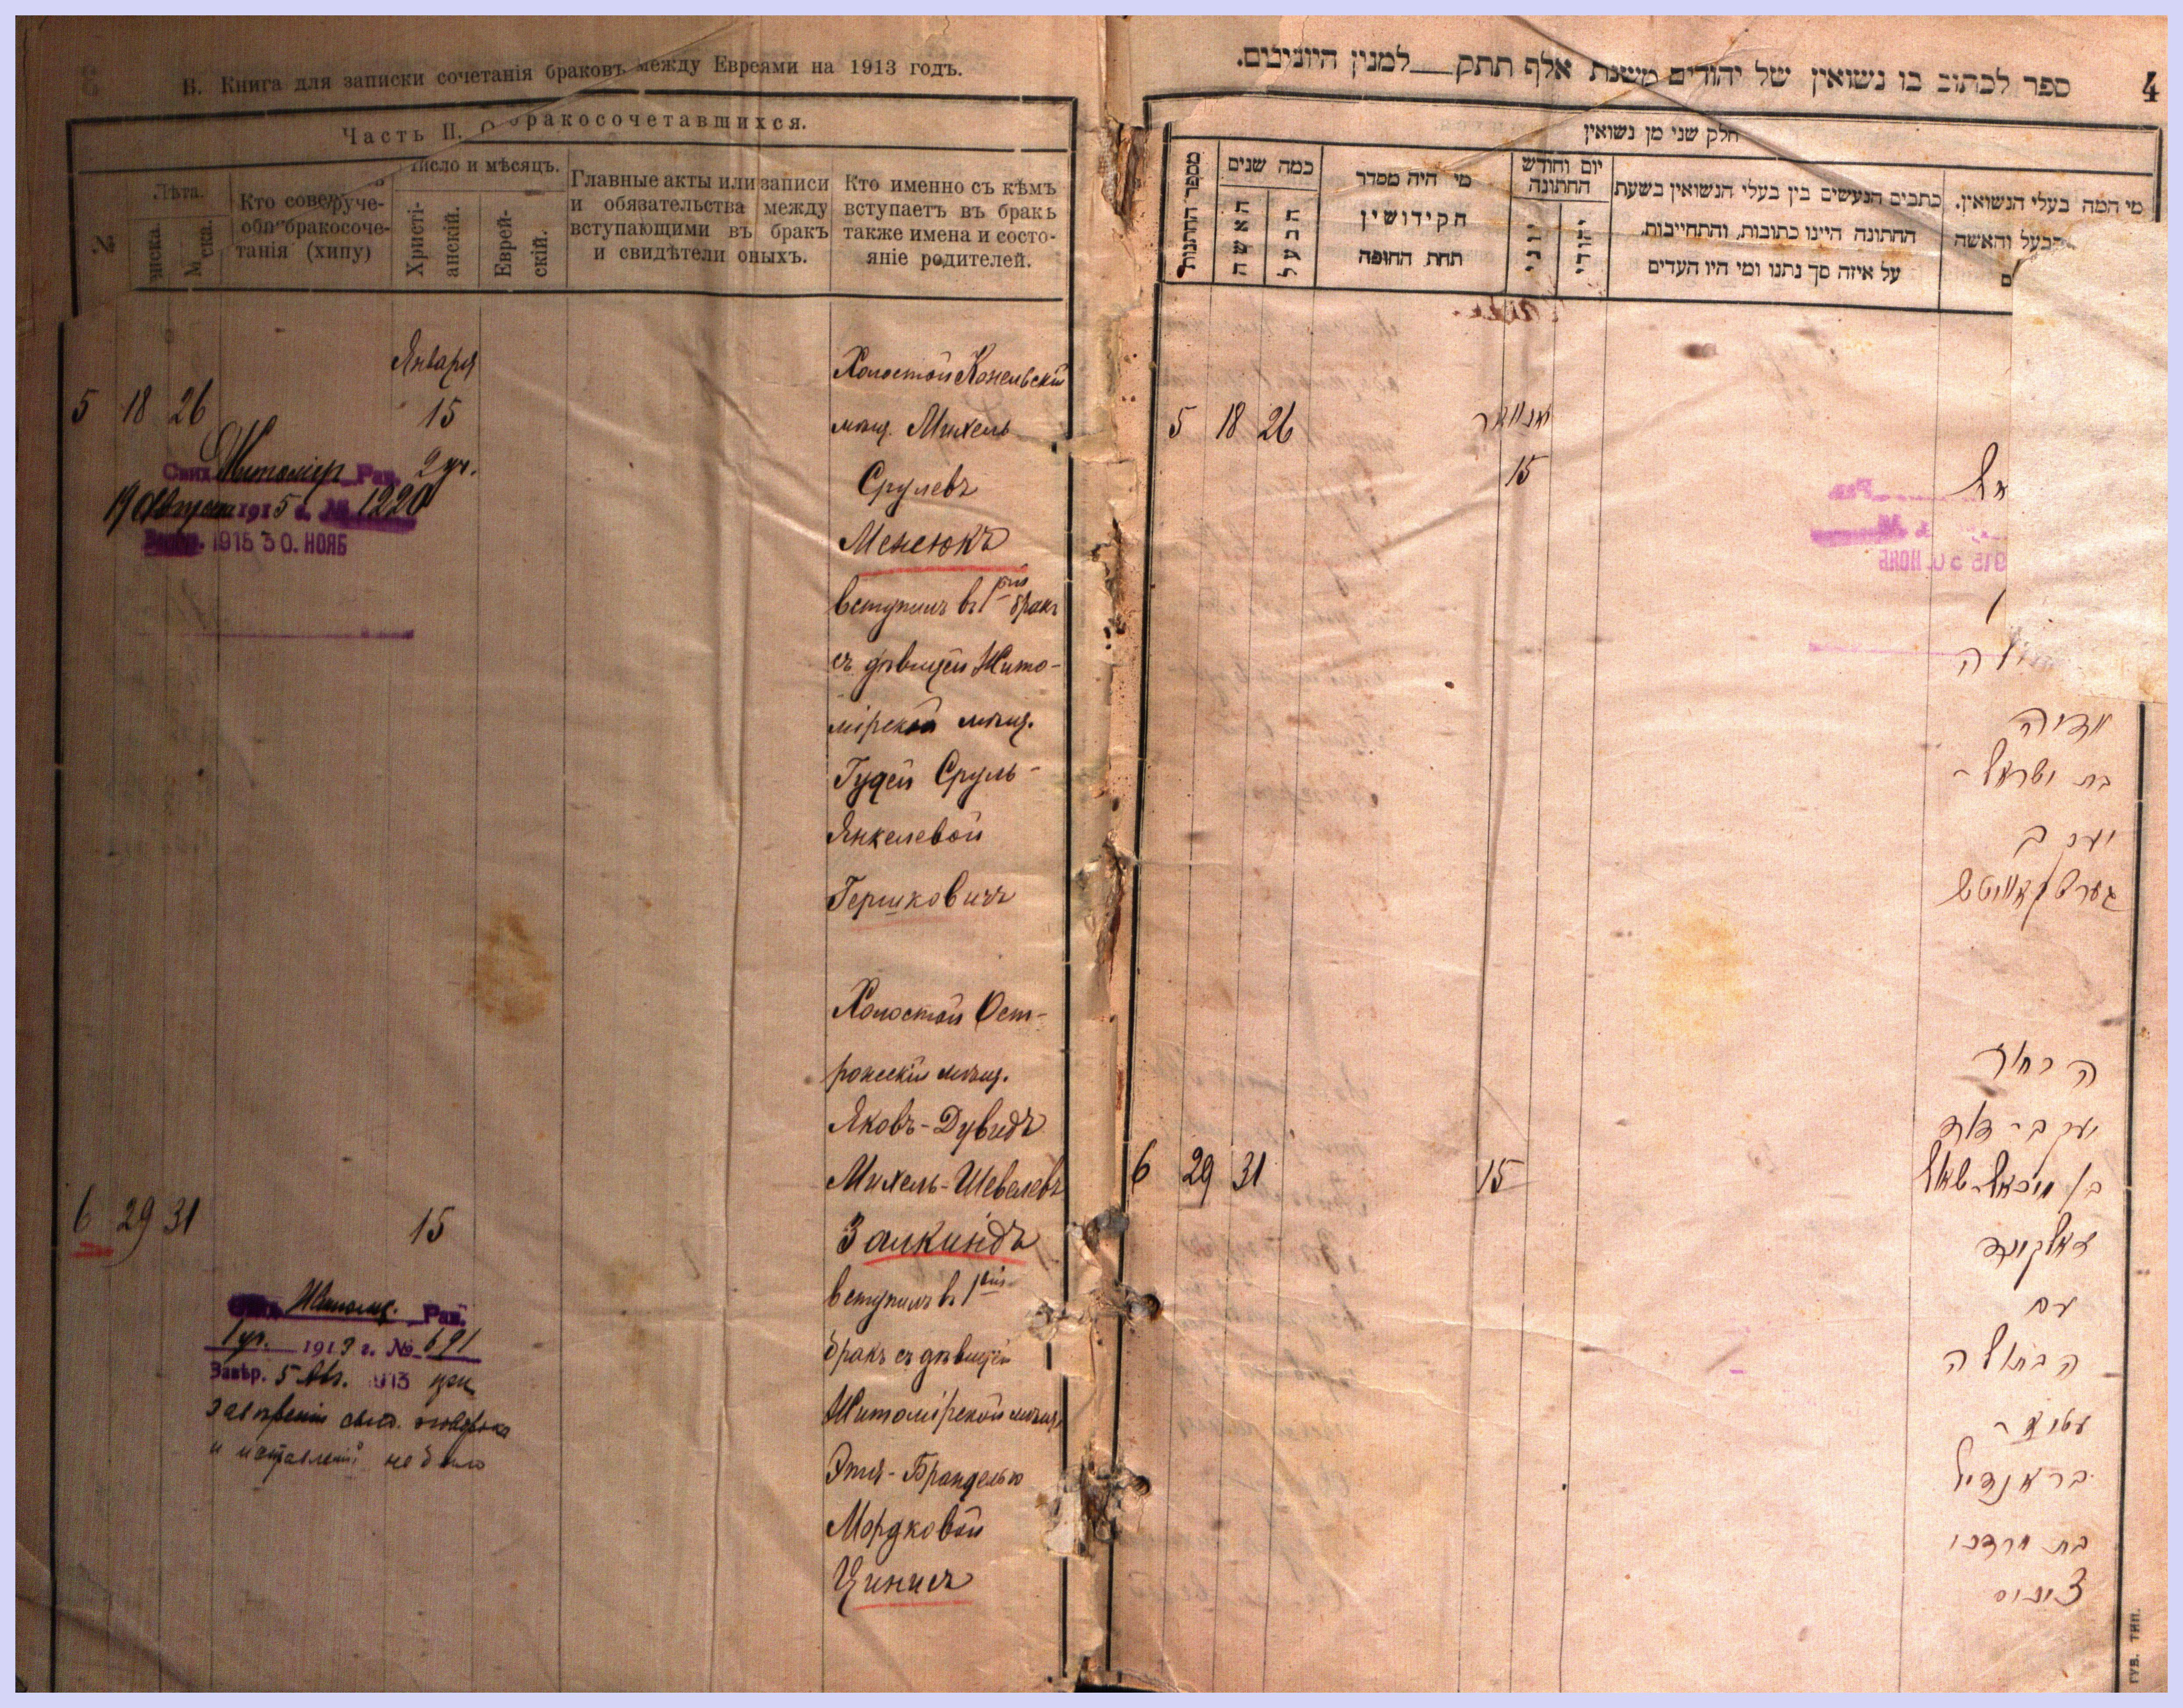 В. Книга для записки сочетанія браковъ между Евреями на 1913 годъ.
Часть II. О бракосочетавшихся.
Лѣта.
Кто совер
обр бракосоче-
танія (хипу)
Число и мѣсяцъ.
Христі-
анскій.
Еврей-
скій.
Главные акты или записи
и обязательства между
вступающими въ бракъ
и свидѣтели оныхъ.
Кто именно съ кѣмъ
вступаетъ въ бракъ
также имена и состо-
яніе родителей.
5 18 26
Января
15
Житомір Рав. 2 уч.
1915 г. № 1220
1915 30. НОЯБ
Холостой Конельскій
мѣщ. Михель
Срулевъ
Менсюкъ
вступилъ въ 1 вый бракъ
съ дѣвицей Жито-
мірской мѣщ.
Гудей Сруль-
Янкелевой
Гершковичъ
6 29 31
15
Рав.
1 уч. 1913 г. № 691
Завѣр. 5 Авг. 1913 при
завѣреніи свид. оговорокъ
и исправленій не было
Холостой Ост-
рожскій мѣщ.
Яковъ-Дувидъ
Михель-Шевелевъ
Залкиндъ
вступилъ въ 1 вый
бракъ съ дѣвицей
Житомірской мѣщ.
Этя-Бранделью
Мордковой
Цинисъ
4
ספר לכתוב בו נשואין של יהודים משנת אלף תתק למנין היוונים.
חלק שני מן נשואין
מספר החתונות
כמה שנים
האשה
הבעל
מי היה מסדר
הקידושין
תחת החופה
יום וחודש
החתונה
יווני
יהודי
כתבים הנעשים בין בעלי הנשואין בשעת
החתונה היינו כתובות, והתחייבות,
על איזה סך נתנו ומי היו העדים
מי המה בעלי הנשואין.
הבעל והאשה
5 18 26
יאנוואר
15
בת ישראל-
יעקב
גערשקאוויטש
6 29 31
15
הבחור
יעקב-דוד
בן מיכאל-שאול
זאלקינד
עם
הבתולה
עטיא-
בראנדיל
בת מרדכי
ציניס
ГУБ. ТИП.